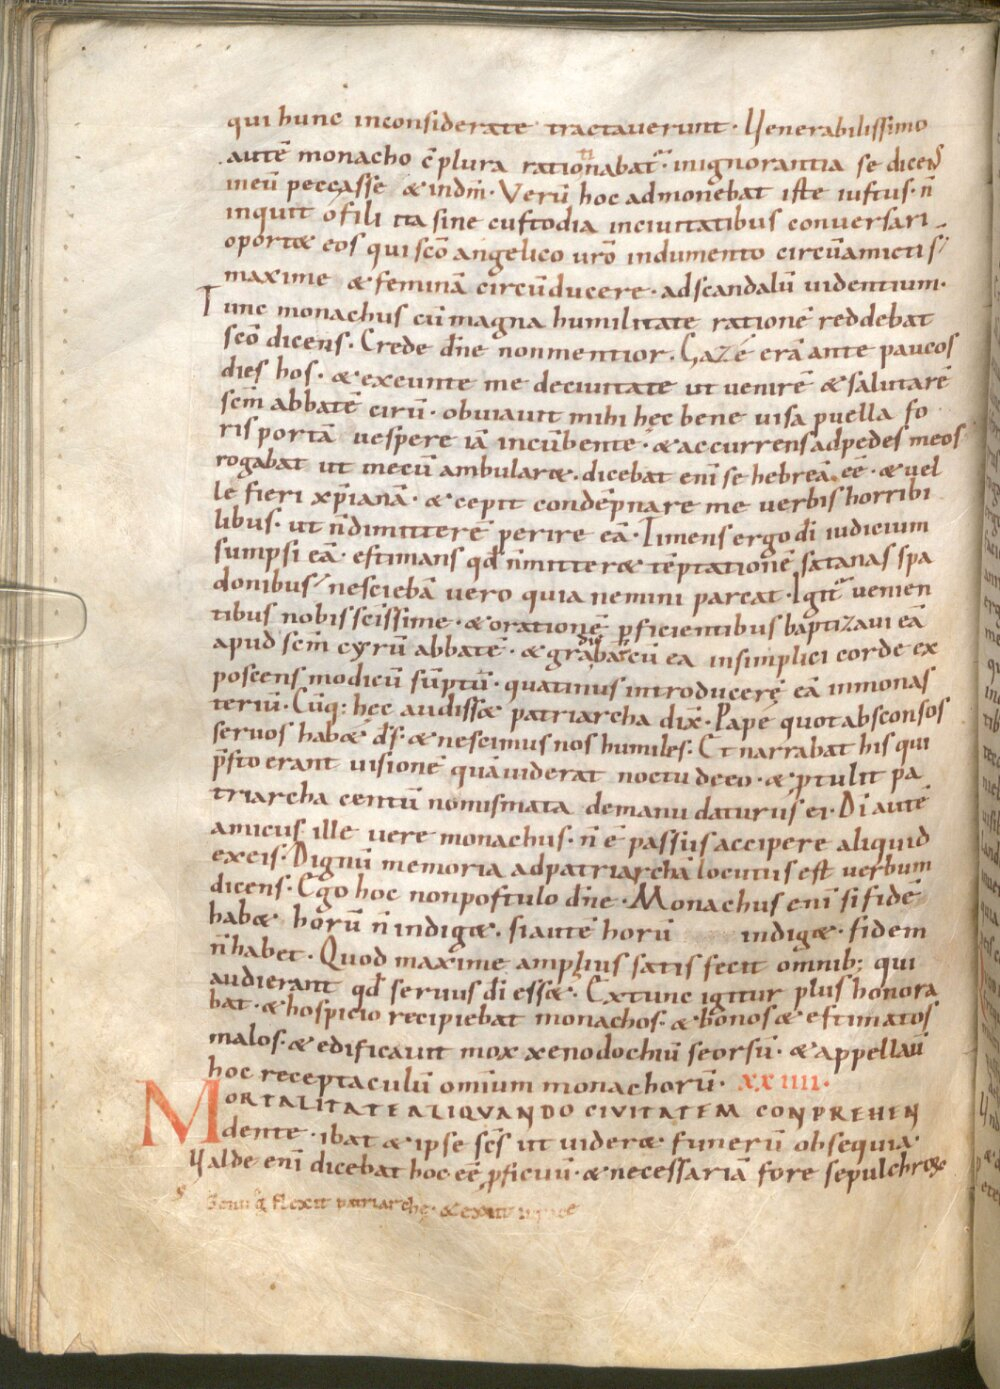 qui hunc inconsiderate tractaverunt · Venerabilissimo
autē monacho c̄ plura rationabat᷑ · inignorantia se dicens
ineū peccasse & indn̄i · Verū hoc admonebat iste iustus · n̄
inquit o fili ita sine custodia inciuitatibus conversari
oport& eos qui scō angelico ur̄o indumento circūamictis
maxime & feminā circūducere · adscandalū uidentium ·
Tunc monachus cū magna humilitate rationē reddebat
scō dicens · Crede dn̄e nonmentior · Gazę erā ante paucos
dies hos · & exeunte me deciuitate ut venirē & salutarē
scm̄ abbatē cirū · obuiauit mihi hęc bene uisa puella fo
ris portā vespere iā incūbente · & accurrens adpedes meos
rogabat ut mecū ambular& · dicebat eni se hebreā eē · & vel
le fieri xp̄ianā · & cepit condēpnare me verbis horribi
libus · ut n̄dimitterē perire eā · Timens ergo dī iudicium
sumpsi eā · estimans qd̄ n̄mitter& tēptationē satanas spa
donibus nesciebā vero quia nemini parcat · Igit᷑ venien
tibus nobis scīssime · & orationē p̱ficientibus baptizaui eā
apud scm̄ cyrū abbatē · & gradiebar cū ea insimplici corde ex
poscens modicū sūptū · quatinus introducerē eā inmonas
teriū · Cūq: hęc audiss& patriarcha dix̄ · Papę quot absconsos
servos hab& ds̄ · & nescimus nos humiles · Et narrabat his qui
p̄sto erant uisionē quā uiderat noctu deeo · & p̱tulit pa
triarcha centū nomismata demanu daturus ei · Dī autē
amicus ille vere monachus · n̄ ē passus accipere aliquid
exeis · Dignū memoria adpatriarchā locutus est verbum
dicens · Ego hoc nonpostulo dn̄e · Monachus enī si fidē
hab& horū n̄ indig& · si autē horū indig& · fidem
n̄ habet · Quod maxime amplius satis fecit omnib; qui
audierant qd̄ servus dī ess& · Extunc igitur plus honora
bat · & hospicio recipiebat monachos · & bonos & estimatos
malos · & edificauit mox xenodochiū seorsū · & appellaū
hoc receptaculū omnium monachorū · XXIIII ·
MORTALITATE ALIQVANDO CIVITATEM CONPREHEN
dente · ibat & ipse scs̄ ut uider& funerū obsequia ·
Valde enī dicebat hoc eē p̱ficuū · & necessariā fore sepulchro
Genu flexit patriarchę · & exiuit